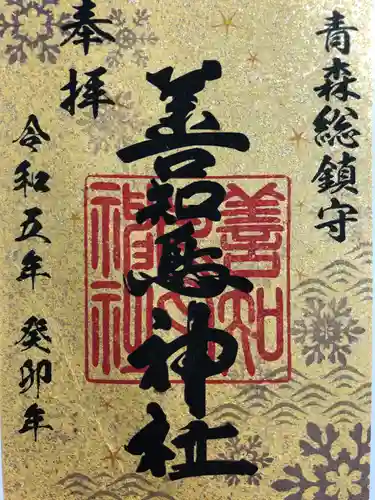 青森総鎮守
善知鳥神社
善知鳥神社
奉拝
令和五年 癸卯年